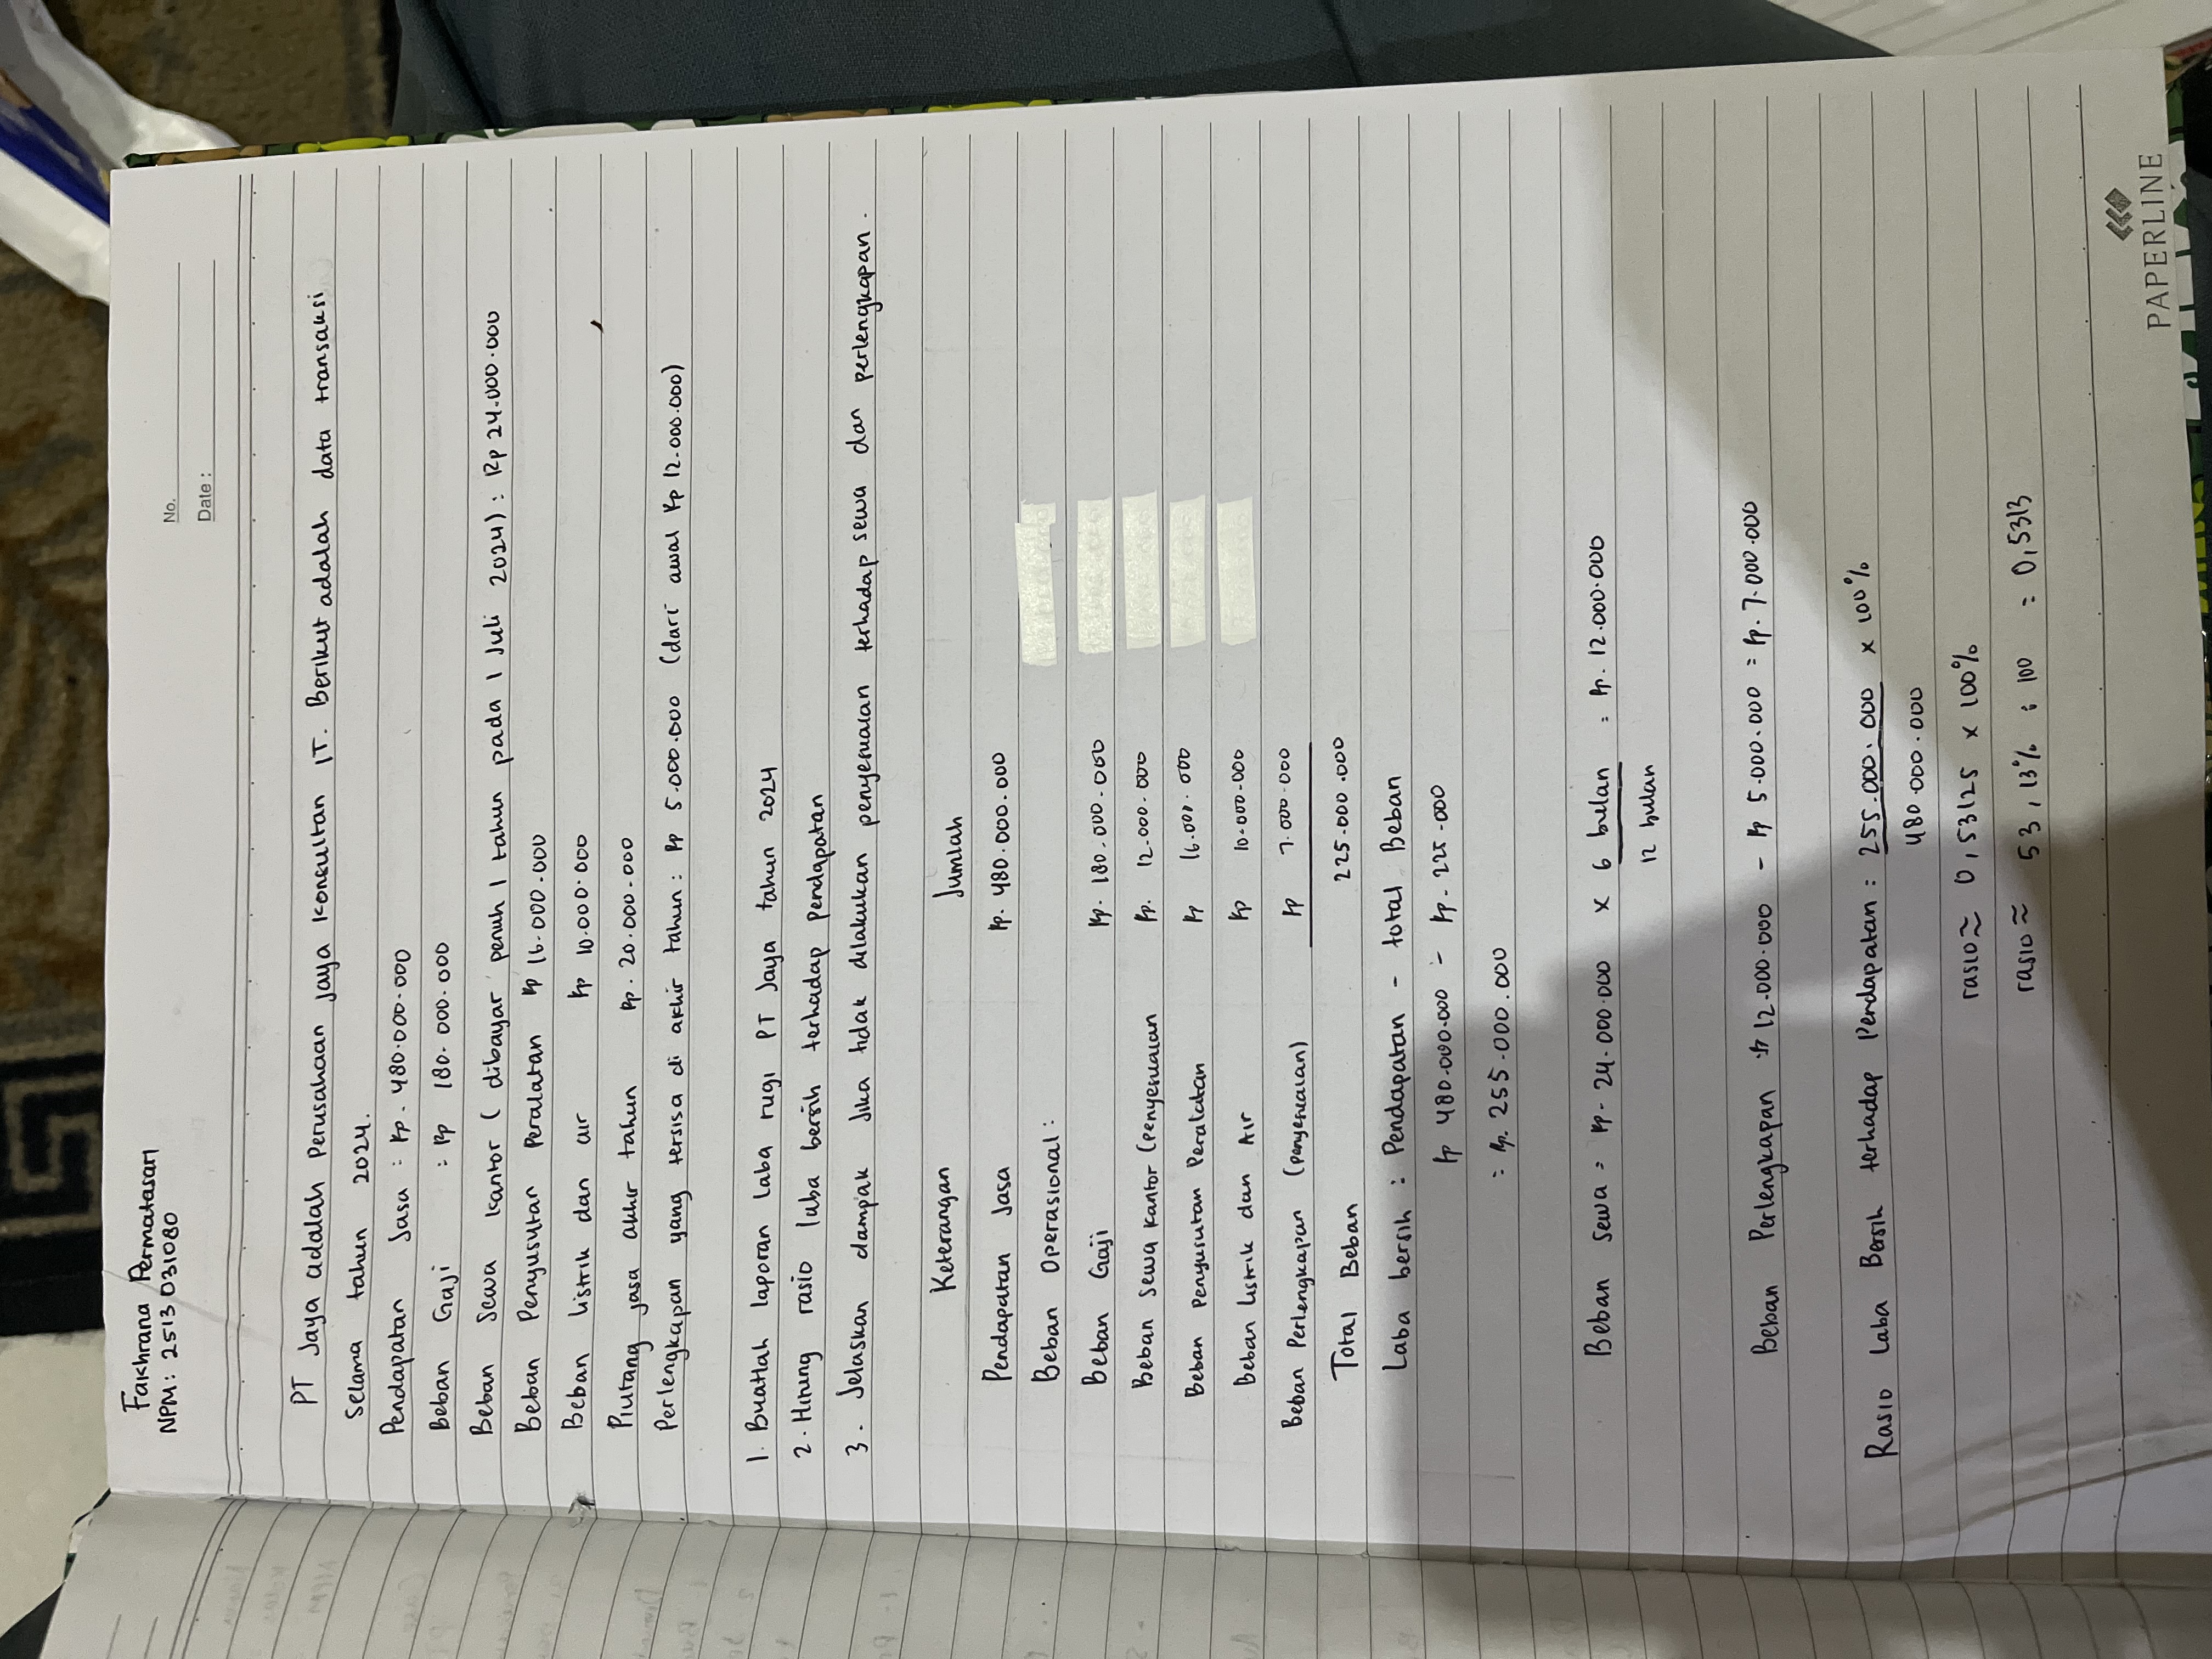 Fakhrana Permatasari
NPM : 2513031080
No.
Date :
PT Jaya adalah Perusahaan Jaya Konsultan IT. Berikut adalah data transaksi
Selama tahun 2024.
Pendapatan Jasa : Rp. 480.000.000
Beban Gaji : Rp 180.000.000
Beban Sewa Kantor (dibayar penuh 1 tahun pada 1 Juli 2024) : Rp 24.000.000
Beban Penyusutan Peralatan Rp 16.000.000
Beban listrik dan air Rp 10.000.000
Piutang jasa akhir tahun Rp. 20.000.000
Perlengkapan yang tersisa di akhir tahun : Rp 5.000.000 (dari awal Rp 12.000.000)
1. Buatlah laporan laba rugi PT Jaya tahun 2024
2. Hitung rasio laba bersih terhadap pendapatan
3. Jelaskan dampak Jika tidak dilakukan penyesuaian terhadap sewa dan perlengkapan.
Keterangan Jumlah
Pendapatan Jasa Rp. 480.000.000
Beban Operasional :
Beban Gaji Rp. 180.000.000
Beban Sewa Kantor (Penyesuaian Rp. 12.000.000
Beban Penyusutan Peralatan Rp 16.000.000
Beban Listrik dan Air Rp 10.000.000
Beban Perlengkapan (penyesuaian) Rp 7.000.000
Total Beban 225.000.000
Laba bersih : Pendapatan - total Beban
Rp 480.000.000 - Rp. 225.000
: Rp. 255.000.000
Beban Sewa = Rp. 24.000.000 x 6 bulan = Rp. 12.000.000
12 bulan
Beban Perlengkapan Rp 12.000.000 - Rp 5.000.000 = Rp. 7.000.000
Rasio Laba Bersih terhadap Pendapatan : 255.000.000 x 100%
480.000.000
rasio ≈ 0,53125 x 100%
rasio ≈ 53,13% : 100 = 0,5313
PAPERLINE